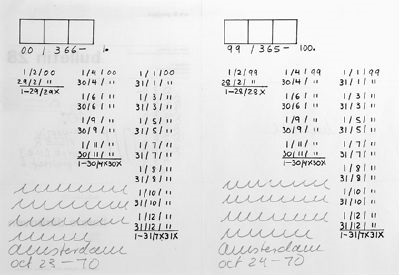 00 / 366- 1.
1/2/00
29/2/"
1-29/29x
1/4/00
30/4/"
1/6/"
30/6/"
1/9/"
30/9/"
1/11/"
30/11/"
1-30/4x30x
1/1/00
31/1/"
1/3/"
31/3/"
1/5/"
31/5/"
1/7/"
31/7/"
1/8/"
31/8/"
1/10/"
31/10/"
1/12/"
31/12/"
1-31/7x31x
amsterdam
oct 23-70
99 / 365- 100.
1/2/99
28/2/"
1-28/28x
1/4/99
30/4/"
1/6/"
30/6/"
1/9/"
30/9/"
1/11/"
30/11/"
1-30/4x30x
1/1/99
31/1/"
1/3/"
31/3/"
1/5/"
31/5/"
1/7/"
31/7/"
1/8/"
31/8/"
1/10/"
31/10/"
1/12/"
31/12/"
1-31/7x31x
amsterdam
oct 24-70